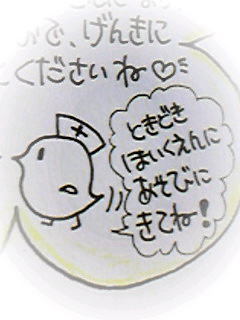 で、げんきに
くださいね♡
ときどき
ほいくえんに
あそびに
きてね!